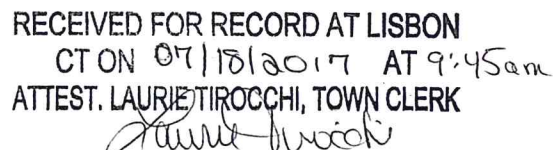 RECEIVED FOR RECORD AT LISBON
CT ON 07/18/2017 AT 9:45am
ATTEST. LAURIE TIROCCHI, TOWN CLERK
Laurie Tirocchi